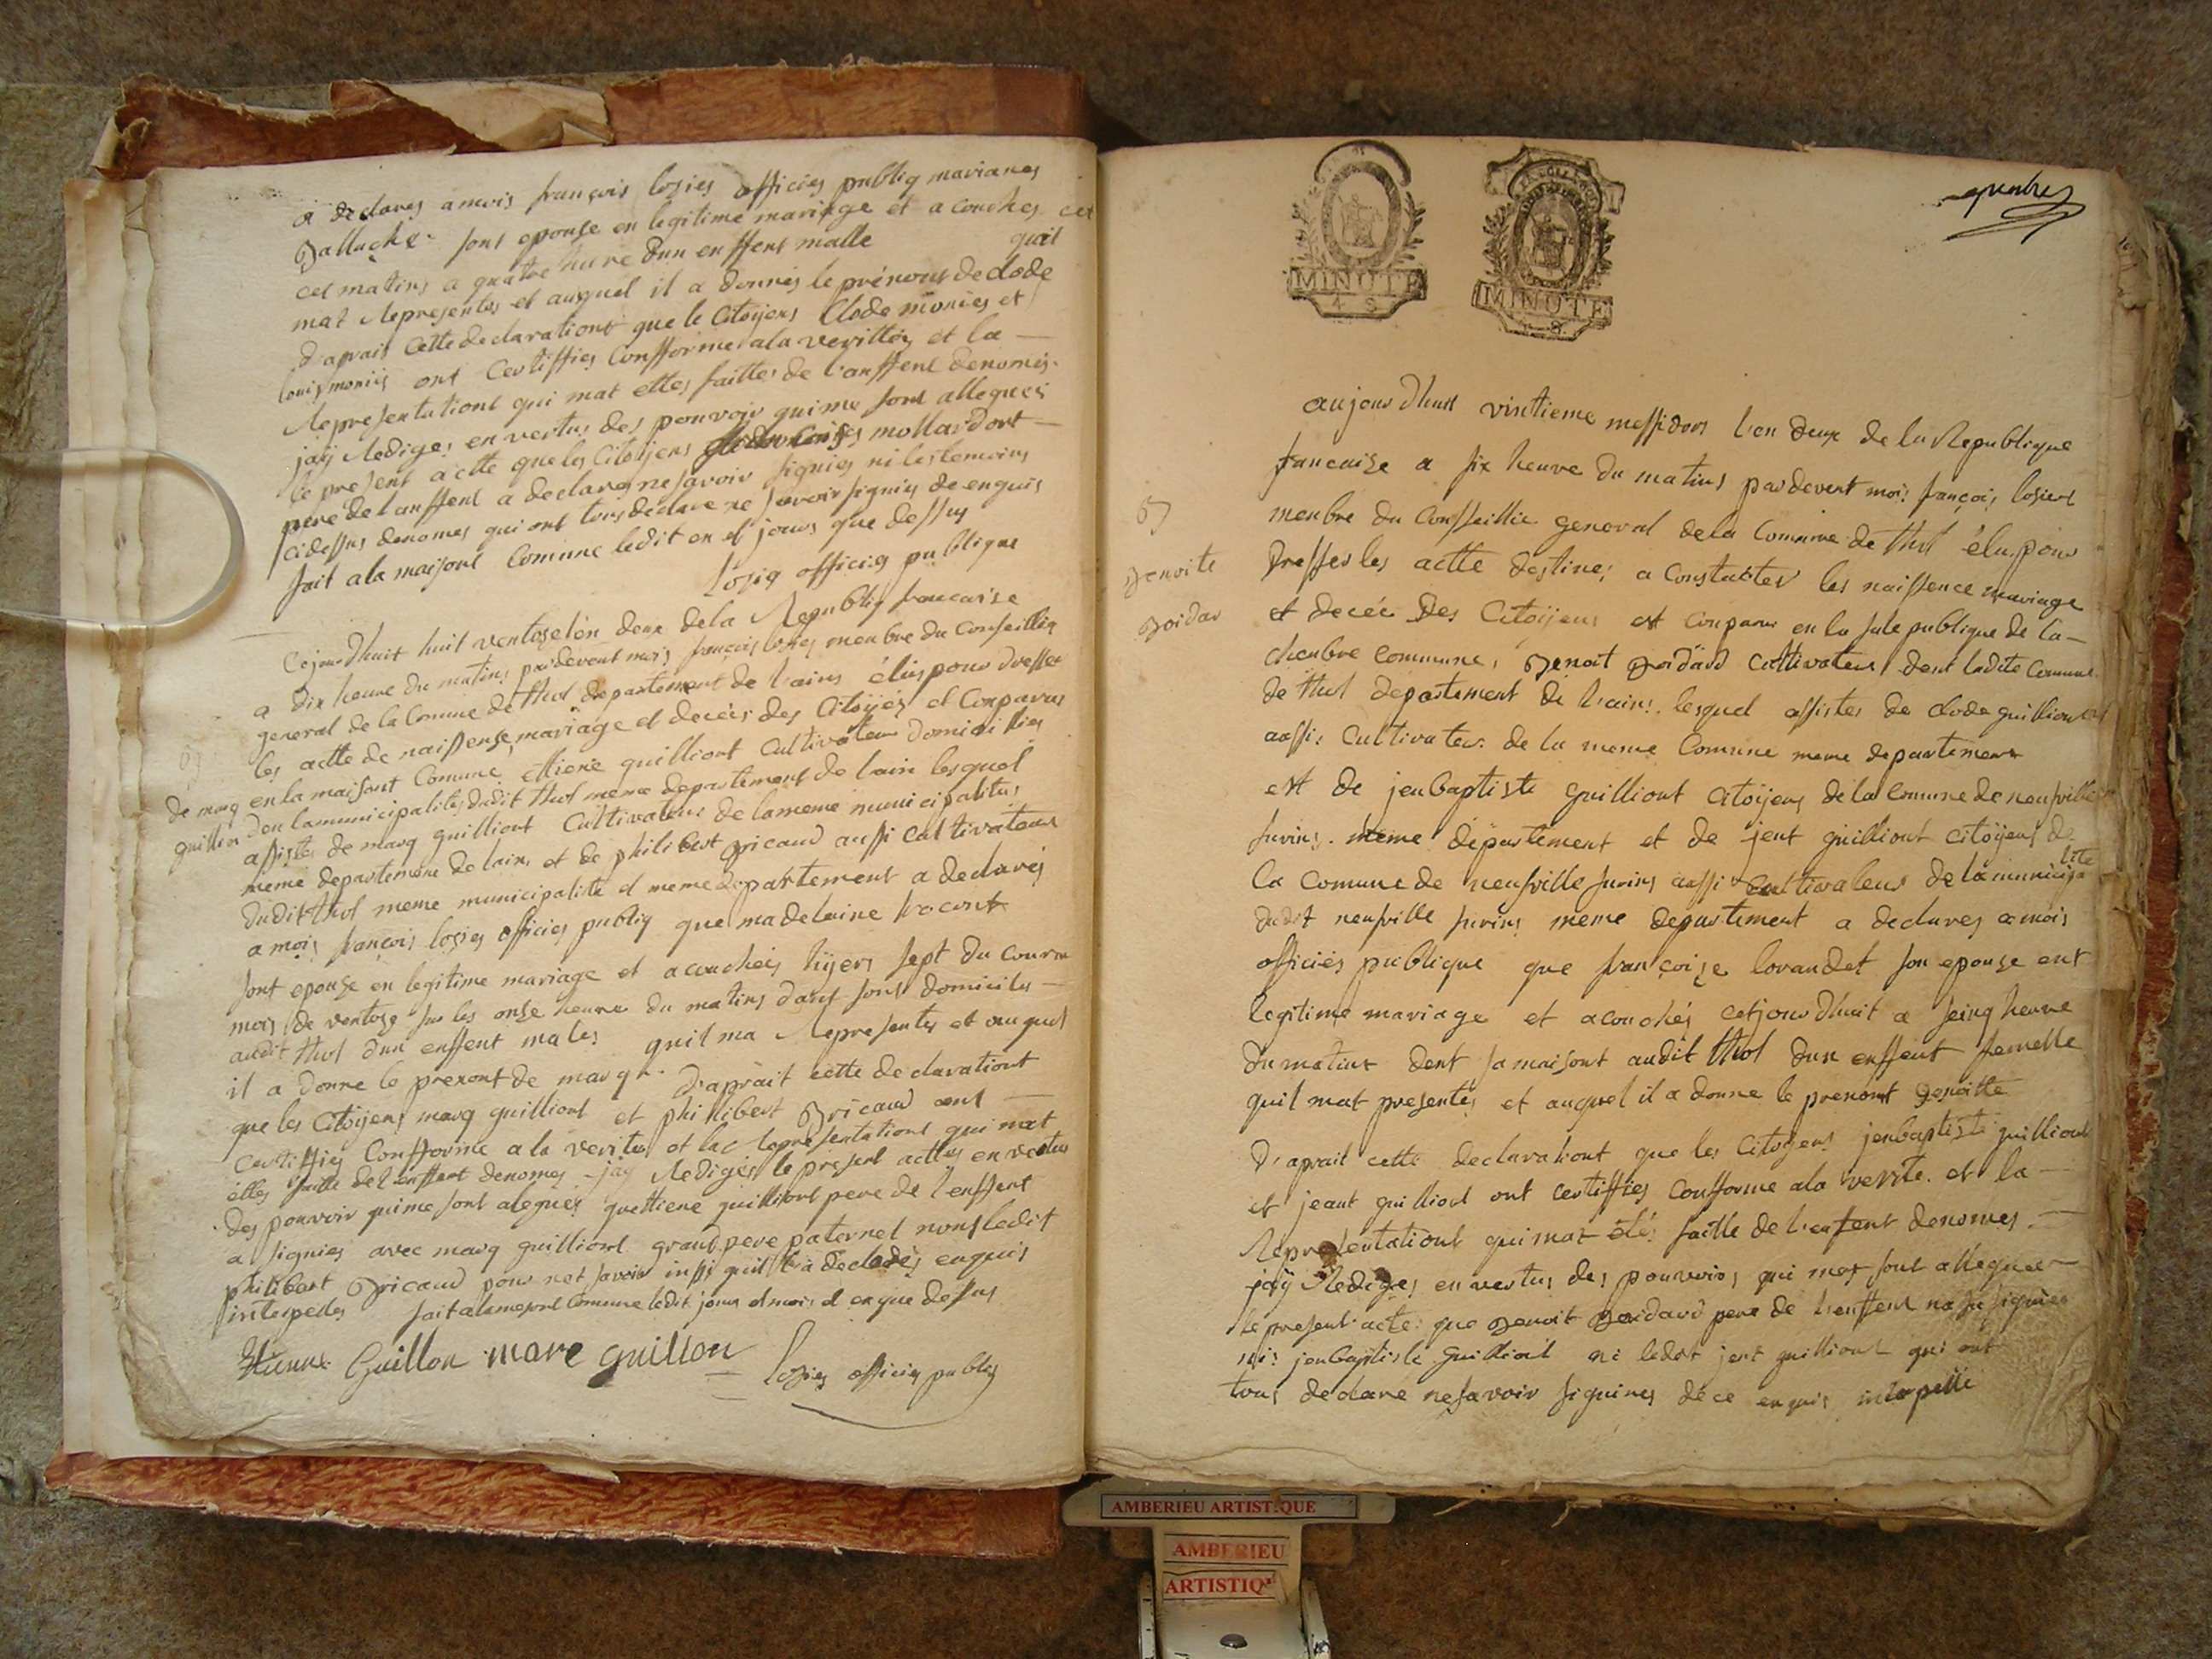 a declares a mois françois losies officies publiq marianes
Balluche sont epouse en legitime mariage et a couches cet
cet matins a quatre heure dun enffent malle quil
mat Représentes et auquel il a donnés le prénont de clode
d'aprais cette declarationt que le Citoÿens Clode moniés et
louis moniés ont Certiffies Confforme ala verittés et la
Representationt qui mat ettes faittes de l'anffent denomés
jaÿ Rediges en vertus des pouvoir qui me sont allegués
le present actte que les Citoÿens mollardont
pere de l'anffent a declares ne savoir signies ni les temoins
cidessus denomes qui ont tous declare ne savoir signies de enquis
fait a la maisont Comune ledit en et jours que dessus
losies officies publique
Cejourdhuit huit ventose lén deux de la Republiq francaise
a dix heure du matins pardevent mois françois losies menbre du Conseillies
general de la Comune de thol departement de l'ains élus pour dresser
les actte de naissense, mariage et decées des Citoÿes et Comparus
en la maisont Comune ettiene guilliont Cultivateur domicillies
de marq
guillion
den la municipalites dudit thol meme departement de l'ain lesquel
assistes de marq guilliont Cultivateur de la meme municipalites
meme departement de lains et de philibert Bricaud aussi Cultivateur
dudit thol meme municipalite et meme departement a declarés
a mois françois losies officies publiq que madelaine
sont epouse en legitime mariage et acouchées hÿers sept du courm
mois de ventose sur les onse heure du matins dans sont domiciles
audit thol dun enffent males quil ma Représentes et auquel
il a donne le prenont de marq D'aprait cette declarationt
que les Citoÿens marq guilliont et philibert Bricaud ont
Certiffies Confforme a la verites et la Representationt qui mat
ettes faitte de l'enffent denomes jaÿ Redigés le present acttes en vertus
des pouvoir qui me sont alegues quettiene guilliont pere de l'enffent
a signies avec marq guilliont grand pere paternel nont ledit
philibert Bricaud pour net savoir inssi quil l'a declarés enquis
interpelles fait a la mesont Comune ledit jour et mois et en que dessus
Etienne Guillon marc guillon
losies officies publiq
MINUTE
4 S
MINUTE
aujourdhuit vintieme messidors l'en deux de la Republique
francaise a six heure du matins pardevent mois françois losiers
B
Benoite
Boidar
menbre du Consseillie general de la Comune de thol élus pour
dresser les actte destines a Constatter les naissence mariage
et decée des Citoÿens est Conparu en la sale publique de la
chenbre Commune, Benoit Boidard Cultivateur dent ladite Comune
de thol departement de l'ains lesquel assistes de clode guilliont
aussi Cultivateur de la meme Comune meme departement
et de jenbaptiste guilliont Citoÿens de la Comune de neufville
surins meme département et de jent guilliont citoÿens de
la Comune de neufville surins aussi Cultivateur de la municipalite
dudit neufville surins meme departement a declares a mois
officiés publique que françoise lovandet son epouse ent
legitime mariage et acouchés cetjourdhuit a seinq heure
du matins dent sa maisont audit thol dun enffent femelle
quil mat presentés et auquel il a donne le prenont Benoitte
D'aprait cette declarationt que les Citoÿens jenbaptiste guilliont
et jeant guilliont ont certiffies Confforme ala verite. et la
Representationt qui mat étés faitte de l'enfent denomes
jaÿ Rediges en vertus des pouvoirs qui mes sont allegues
le present acte que Benoit Boidard pere de l'enffent na su signies
ni jenbaptiste guilliont ni ledit jent guilliont qui ont
tous declare ne savoir signies de ce enquis intarpellé
AMBERIEU ARTISTIQUE
AMBERIEU
ARTISTIQ